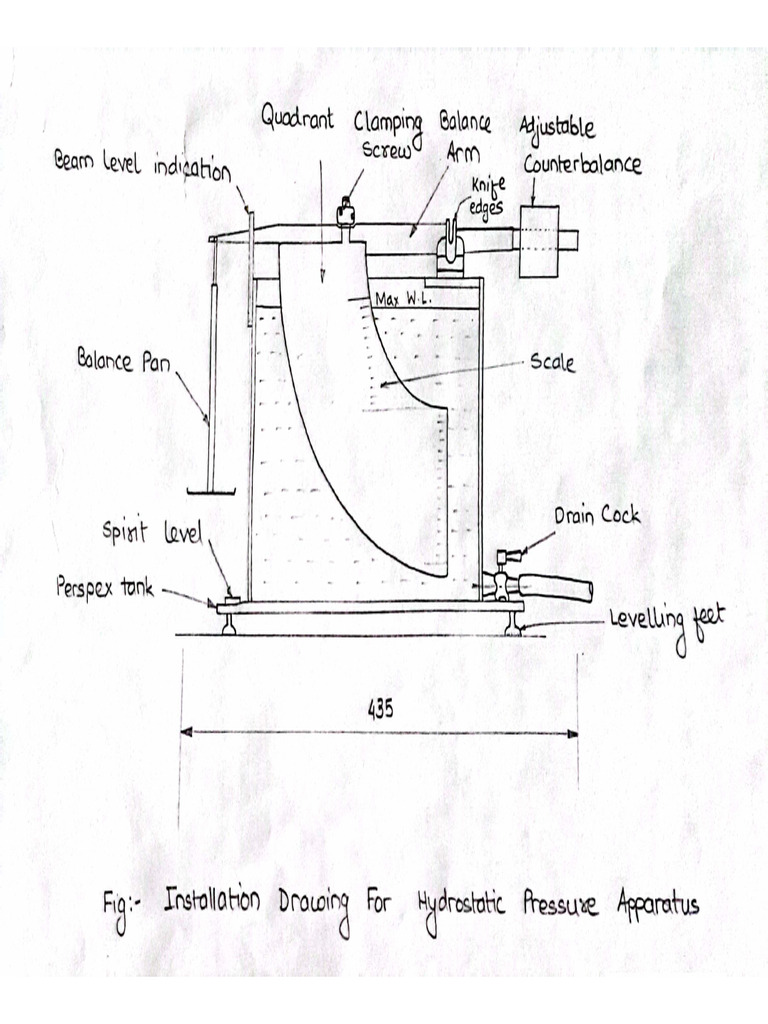 Quadrant
Clamping
Screw
Balance
Arm
Adjustable
Counterbalance
Beam Level indication
Knife
edges
Max W.L.
Balance Pan
Scale
Spirit Level
Drain Cock
Perspex tank
Levelling feet
435
Fig:- Installation Drawing For Hydrostatic Pressure Apparatus